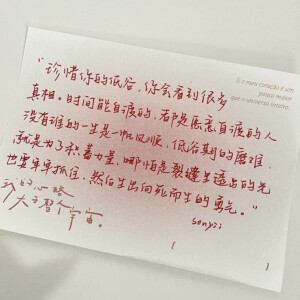 E o meu coração é um
pouco maior
que o universo inteiro.
“珍惜你的低谷，你会看到很多
真相。时间能自渡的，都是愿意自渡的人
没有谁的一生是一帆风顺，低谷期的磨难，
就是为了积蓄力量，哪怕是裂缝里透出的光
也要牢牢抓住，然后生出向死而生的勇气。”
我的心略
大于整个宇宙。